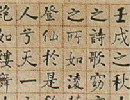 壬戌之秋
之詩歌窈
之所如凌
登仙於是
人兮天一
如縷舞